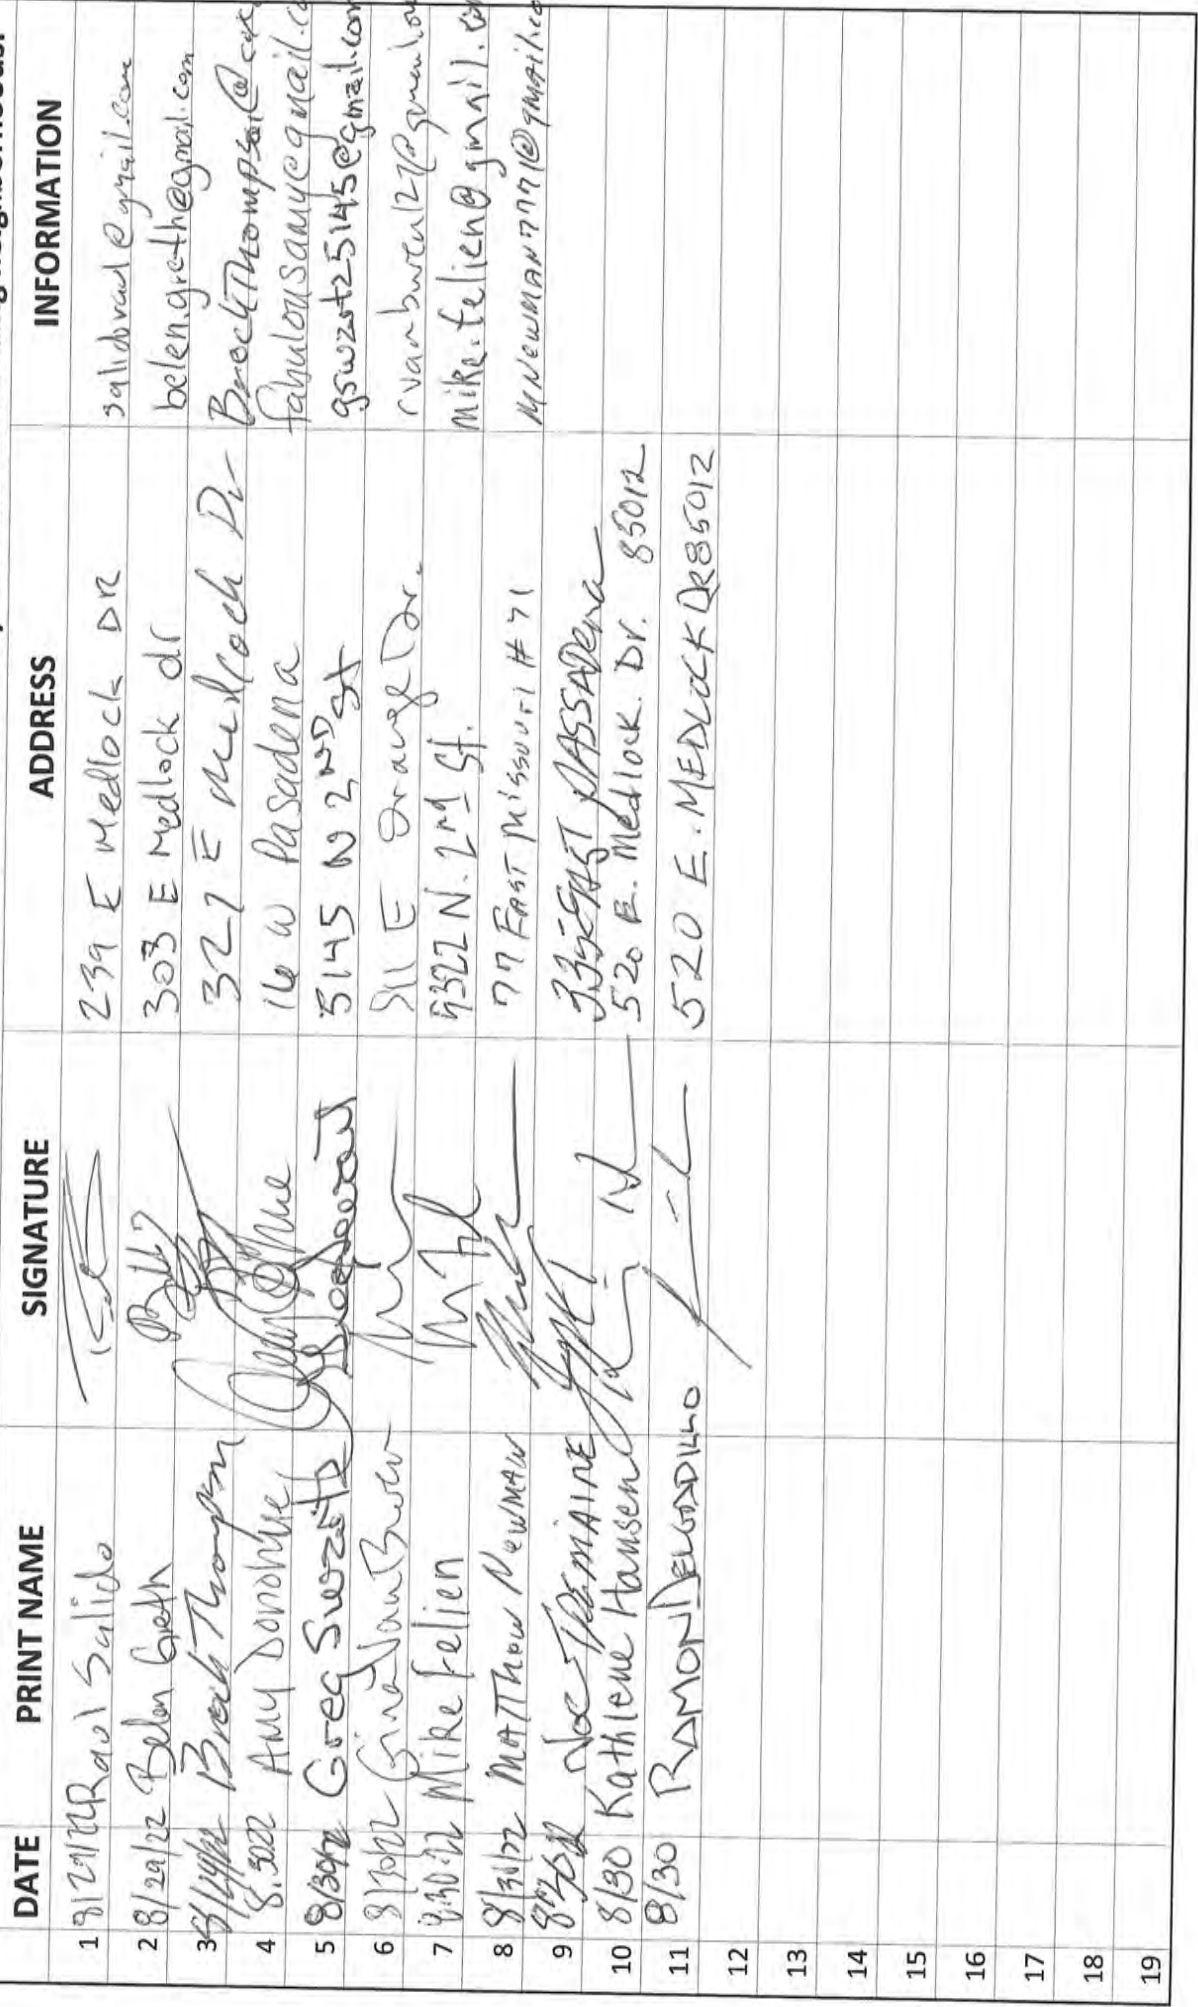 DATE PRINT NAME SIGNATURE ADDRESS INFORMATION
1 8/29/22 Raul Salido 239 E Medlock DR salidoraul@gmail.com
2 8/29/22 Belen Greth 303 E Medlock dr belen.greth@gmail.com
3 Brock Thompson 327 E Medlock Dr
4 8.30.22 Amy Donohue 16 W Pasadena fabulousamy@gmail.co
5 8/30/22 Greg Swartz 5145 N 2ND St gswzrt25145@gmail.com
6 8/30/22 Gina Van Buren 511 E Orange Dr.
7 8.30.22 Mike Felien N. 2nd St. mike.felien@gmail.
8 8/30/22 MATThew NewMAN 77 EAST Missouri # 71 MNEWMAN7771@gmail.co
9 TREMAINE EAST PASSADena
10 8/30 Kathlene Hansen 520 E. Medlock. Dr. 85012
11 8/30 RAMON DELGADILLO 520 E. MEDLOCK DR 85012
12
13
14
15
16
17
18
19